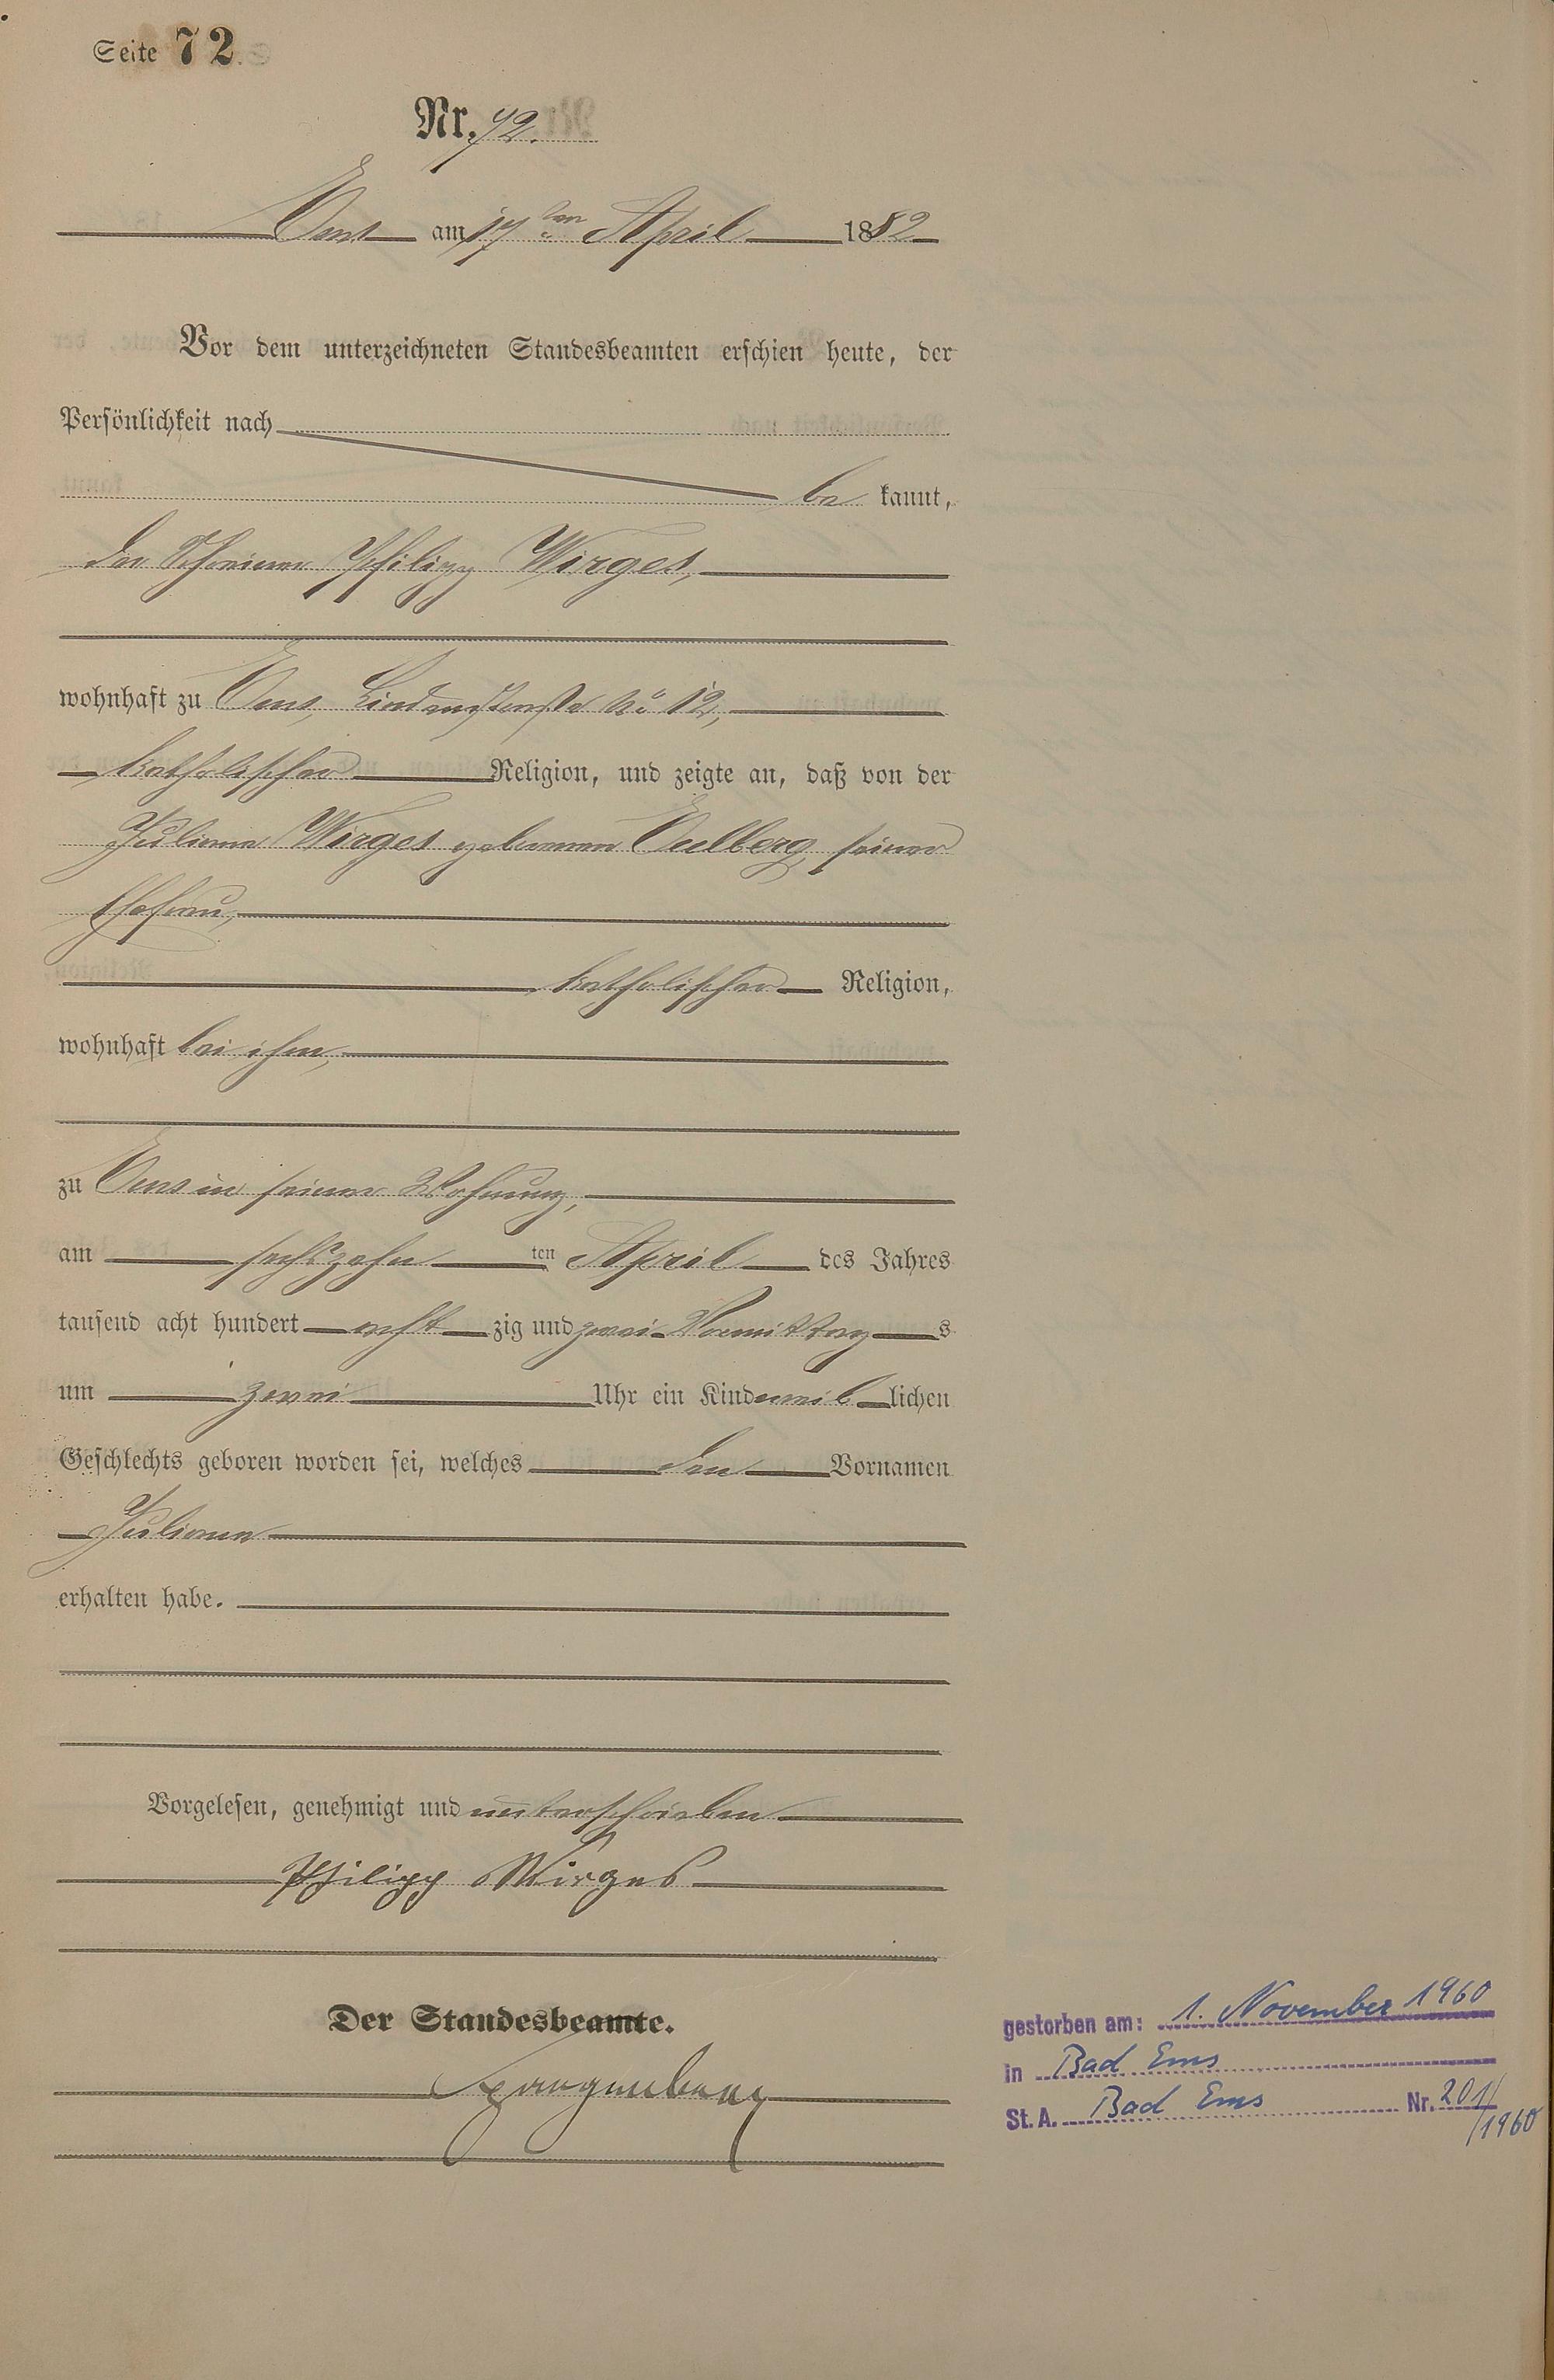 Seite 72.
Nr. 72.
Ems am 17ten April 1882
Vor dem unterzeichneten Standesbeamten erschien heute, der
Persönlichkeit nach
be kannt,
der Schreiner Philipp Wirges,
wohnhaft zu Ems, Lindenstraße No 12,
katholischer Religion, und zeigte an, daß von der
Juliane Wirges geborenen Eulberg, seiner
Ehefrau,
katholischer Religion,
wohnhaft bei ihm,
zu Ems in seiner Wohnung,
am sechszehn ten April des Jahres
tausend acht hundert acht zig und zwei Vormittag s
um zwei Uhr ein Kind weib lichen
Geschlechts geboren worden sei, welches den Vornamen
Juliane
erhalten habe.
Vorgelesen, genehmigt und unterschrieben
Philipp Wirges
Der Standesbeamte.
Spangenberg
gestorben am: 1. November 1960
in Bad Ems
St. A. Bad Ems Nr. 201/
/1960